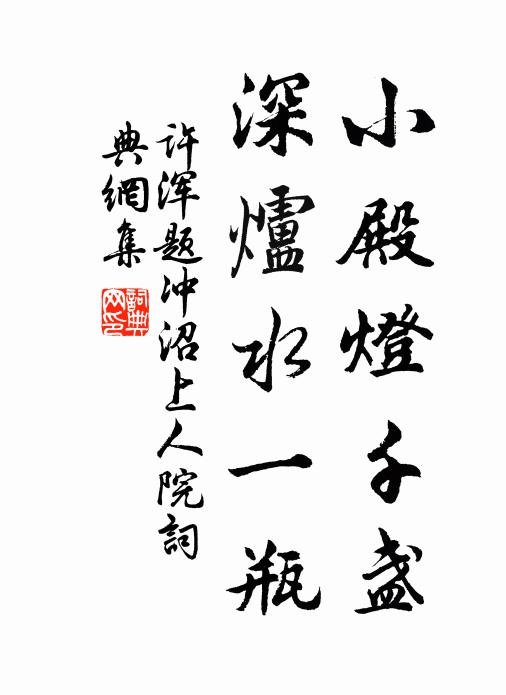 小殿燈千盞
深爐水一瓶
许渾题冲沼上人院詞
典網集
詞典網印